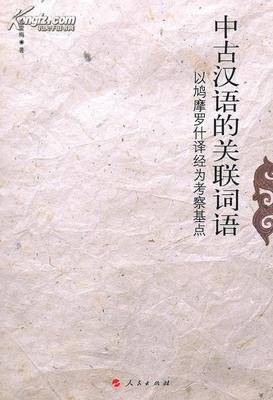 中古汉语的关联词语
以鸠摩罗什译经为考察基点
梅 著
人民出版社
Kongfz.com